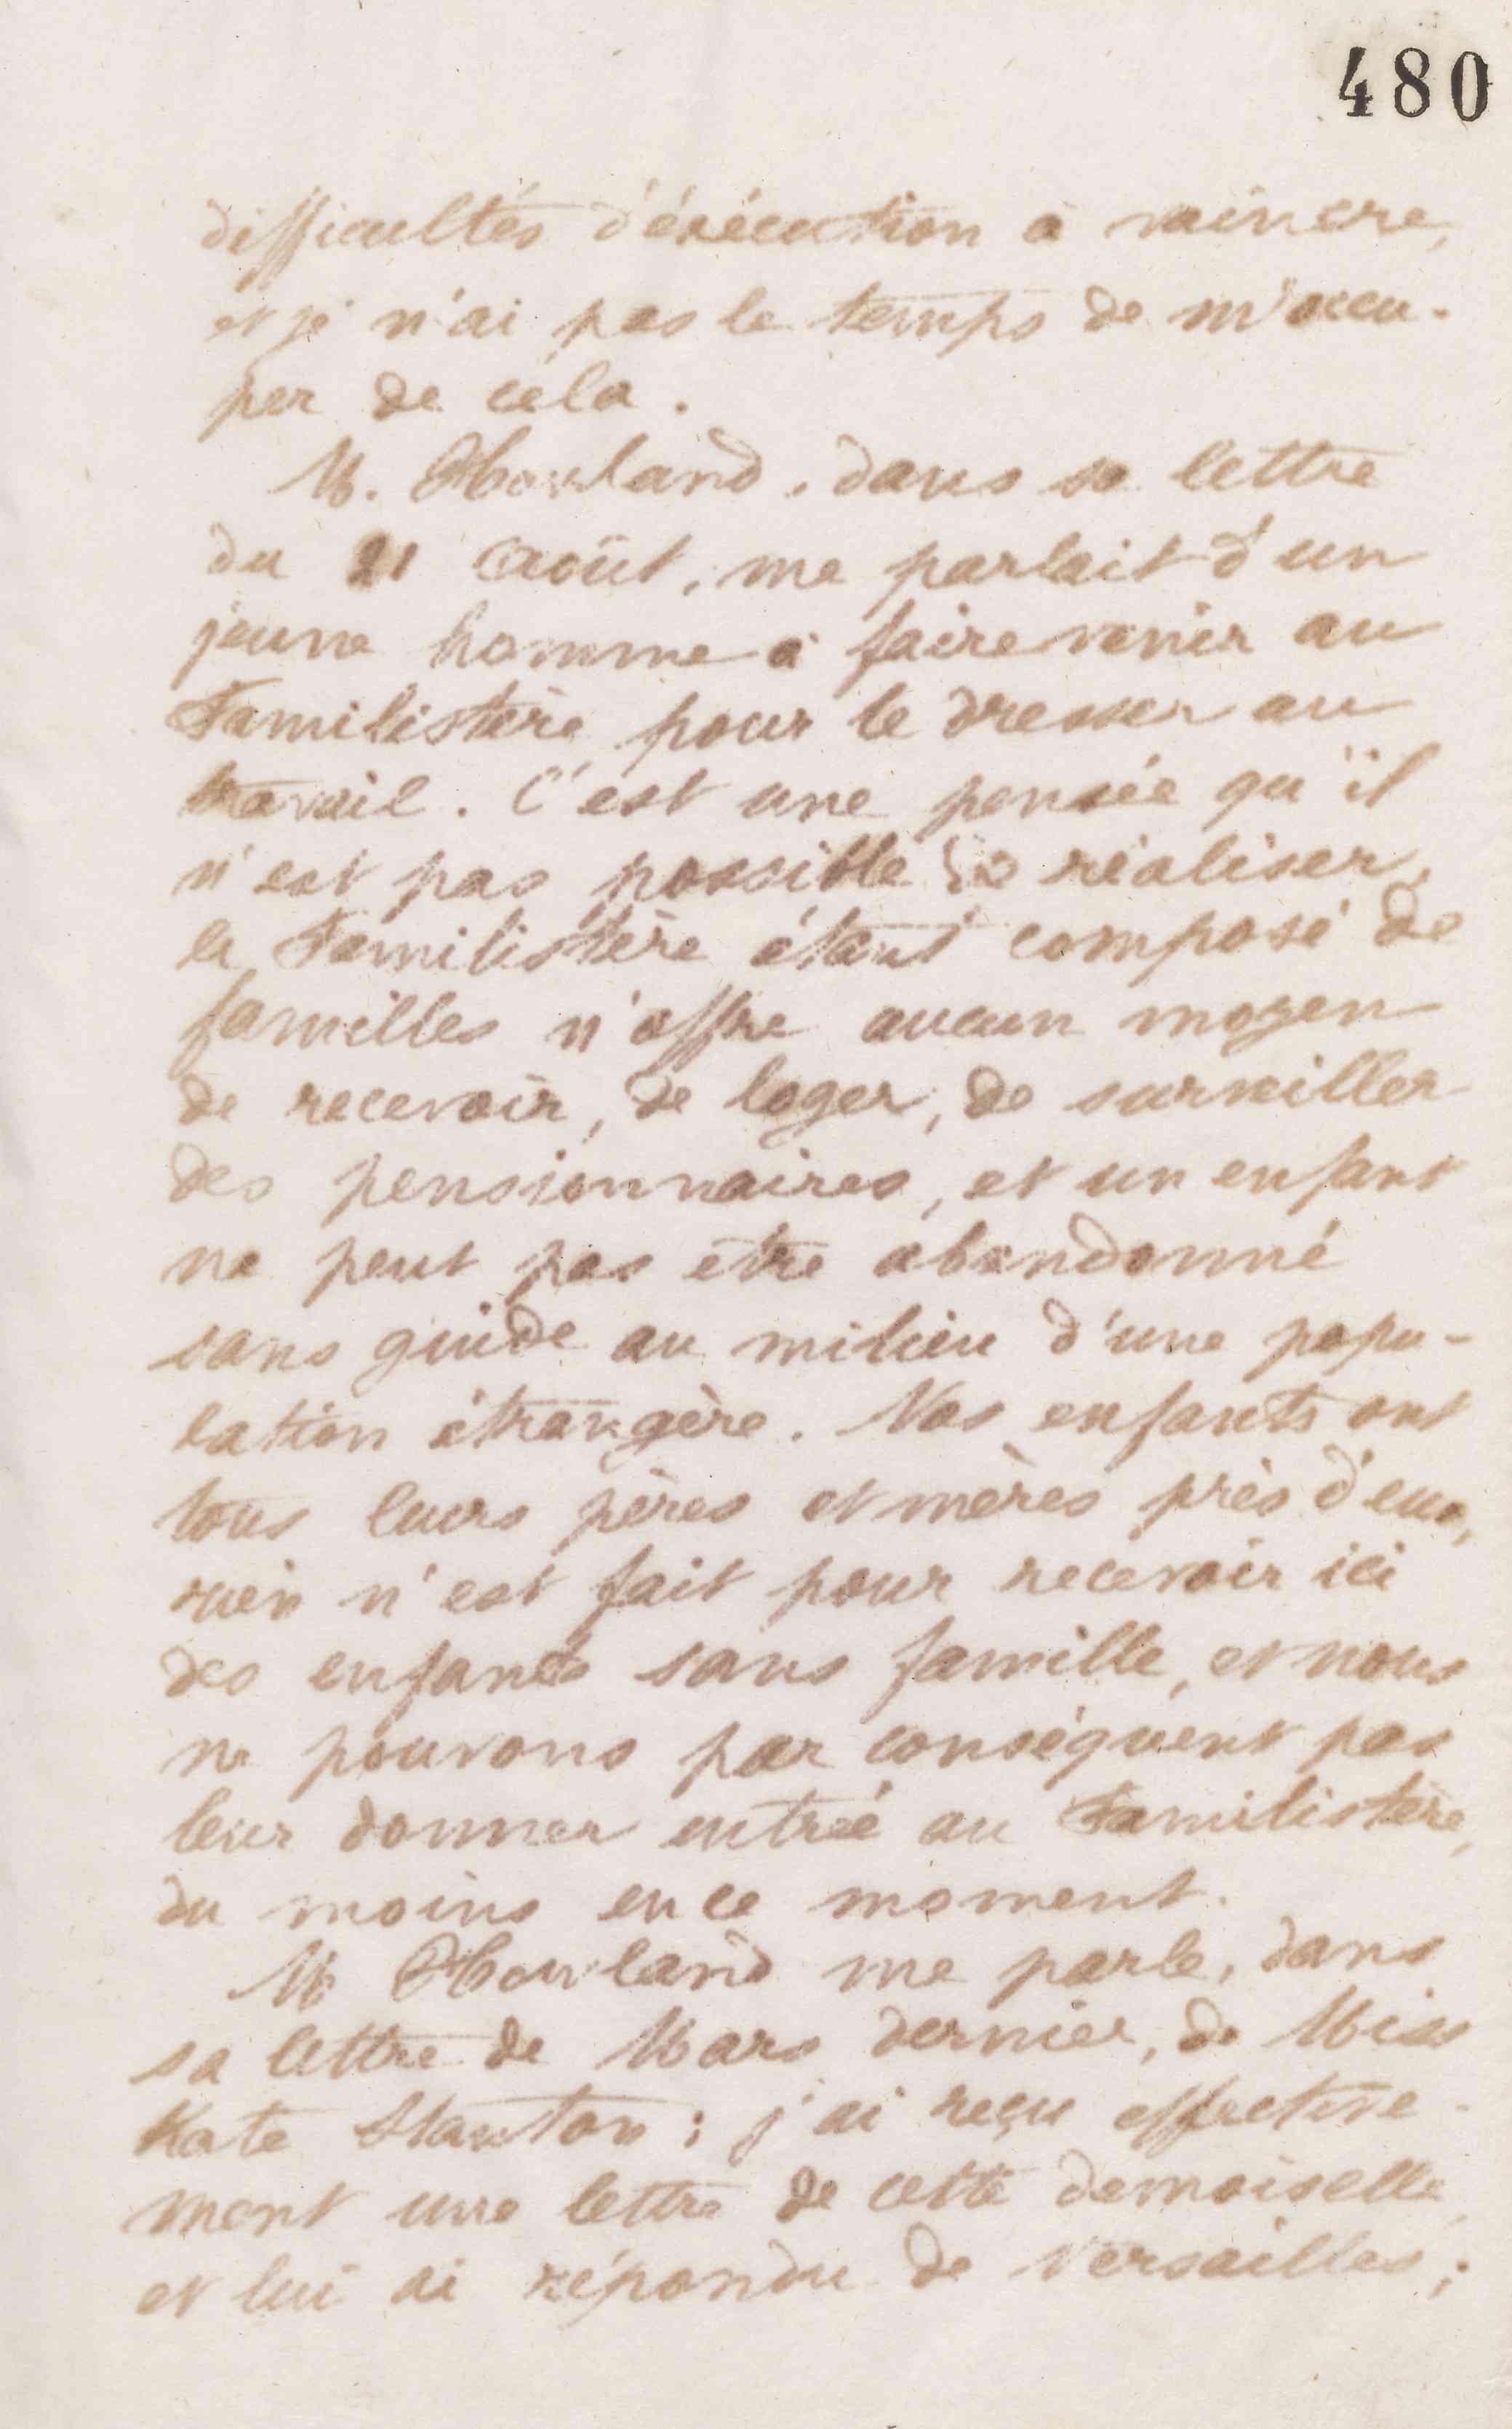 480
difficultés d'éxécution à vaincre,
et je n'ai pas le temps de m'occu-
per de cela.
M. Howland, dans sa lettre
du 21 Août, me parlait d'un
jeune homme à faire venir au
Familistère pour le dresser au
travail. C'est une pensée qu'il
n'est pas possible de réaliser,
le Familistère étant composé de
familles n'offre aucun moyen
de recevoir, de loger, de surveiller
des pensionnaires, et un enfant
ne peut pas être abandonné
sans guide au milieu d'une popu-
lation étrangère. Nos enfants ont
tous leurs pères et mères près d'eux,
rien n'est fait pour recevoir ici
des enfants sans famille, et nous
ne pouvons par conséquent pas
leur donner entrée au Familistère,
du moins en ce moment.
M Howland me parle, dans
sa lettre de Mars dernier, de Miss
Kate Stanton ; j'ai reçu effective-
ment une lettre de cette demoiselle,
et lui ai répondu de Versailles ;